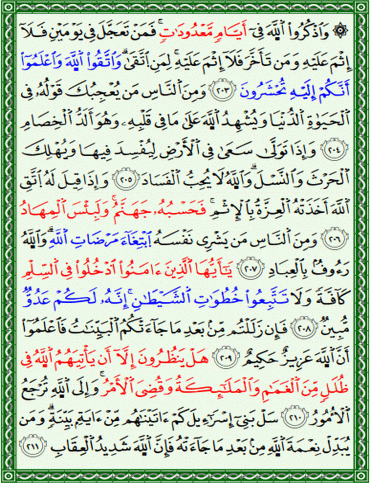 ۞ وَاذْكُرُوا اللَّهَ فِي أَيَّامٍ مَّعْدُودَاتٍ ۚ فَمَن تَعَجَّلَ فِي يَوْمَيْنِ فَلَا
إِثْمَ عَلَيْهِ وَمَن تَأَخَّرَ فَلَا إِثْمَ عَلَيْهِ ۚ لِمَنِ اتَّقَىٰ ۗ وَاتَّقُوا اللَّهَ وَاعْلَمُوا
أَنَّكُمْ إِلَيْهِ تُحْشَرُونَ ﴿٢٠٣﴾ وَمِنَ النَّاسِ مَن يُعْجِبُكَ قَوْلُهُ فِي
الْحَيَوٰةِ الدُّنْيَا وَيُشْهِدُ اللَّهَ عَلَىٰ مَا فِي قَلْبِهِ وَهُوَ أَلَدُّ الْخِصَامِ
﴿٢٠٤﴾ وَإِذَا تَوَلَّىٰ سَعَىٰ فِي الْأَرْضِ لِيُفْسِدَ فِيهَا وَيُهْلِكَ
الْحَرْثَ وَالنَّسْلَ ۗ وَاللَّهُ لَا يُحِبُّ الْفَسَادَ ﴿٢٠٥﴾ وَإِذَا قِيلَ لَهُ اتَّقِ
اللَّهَ أَخَذَتْهُ الْعِزَّةُ بِالْإِثْمِ ۚ فَحَسْبُهُ جَهَنَّمُ ۚ وَلَبِئْسَ الْمِهَادُ
﴿٢٠٦﴾ وَمِنَ النَّاسِ مَن يَشْرِي نَفْسَهُ ابْتِغَاءَ مَرْضَاتِ اللَّهِ ۗ وَاللَّهُ
رَءُوفٌ بِالْعِبَادِ ﴿٢٠٧﴾ يَٰأَيُّهَا الَّذِينَ ءَامَنُوا ادْخُلُوا فِي السِّلْمِ
كَافَّةً وَلَا تَتَّبِعُوا خُطُوَٰتِ الشَّيْطَٰنِ ۚ إِنَّهُ لَكُمْ عَدُوٌّ
مُّبِينٌ ﴿٢٠٨﴾ فَإِن زَلَلْتُم مِّن بَعْدِ مَا جَاءَتْكُمُ الْبَيِّنَٰتُ فَاعْلَمُوا
أَنَّ اللَّهَ عَزِيزٌ حَكِيمٌ ﴿٢٠٩﴾ هَلْ يَنظُرُونَ إِلَّا أَن يَأْتِيَهُمُ اللَّهُ فِي
ظُلَلٍ مِّنَ الْغَمَامِ وَالْمَلَٰئِكَةُ وَقُضِيَ الْأَمْرُ ۚ وَإِلَى اللَّهِ تُرْجَعُ
الْأُمُورُ ﴿٢١٠﴾ سَلْ بَنِي إِسْرَٰءِيلَ كَمْ ءَاتَيْنَٰهُم مِّنْ ءَايَةٍ بَيِّنَةٍ ۗ وَمَن
يُبَدِّلْ نِعْمَةَ اللَّهِ مِن بَعْدِ مَا جَاءَتْهُ فَإِنَّ اللَّهَ شَدِيدُ الْعِقَابِ ﴿٢١١﴾